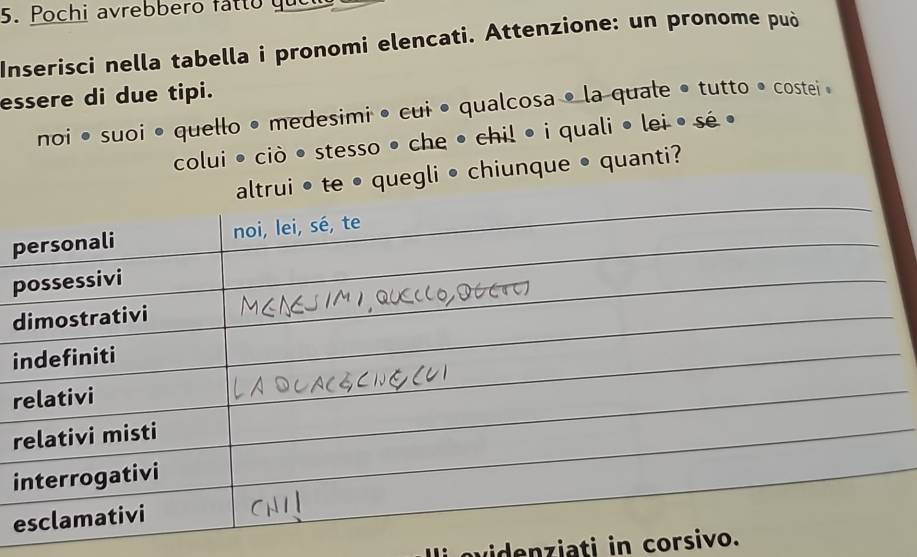 5. Pochi avrebbero fatto
Inserisci nella tabella i pronomi elencati. Attenzione: un pronome può
essere di due tipi.
noi • suoi • quello • medesimi • cui • qualcosa • la quale • tutto • costei •
colui • ciò • stesso • che • chi! • i quali • lei • sé •
altrui • te • quegli • chiunque • quanti?
personali noi, lei, sé, te
possessivi
dimostrativi MEDESIMI, QUELLO,
indefiniti
relativi LA QUALE, CHE, CUI
relativi misti
interrogativi
esclamativi CHI!
evidenziati in corsivo.